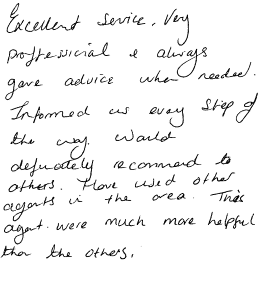 Excellent Service. Very
proffessicial & always
gave advice when needed.
Informed us every step of
the way. Would
definately recommend to
others. Have used other
agents in the area. This
agent were much more helpful
than the others.